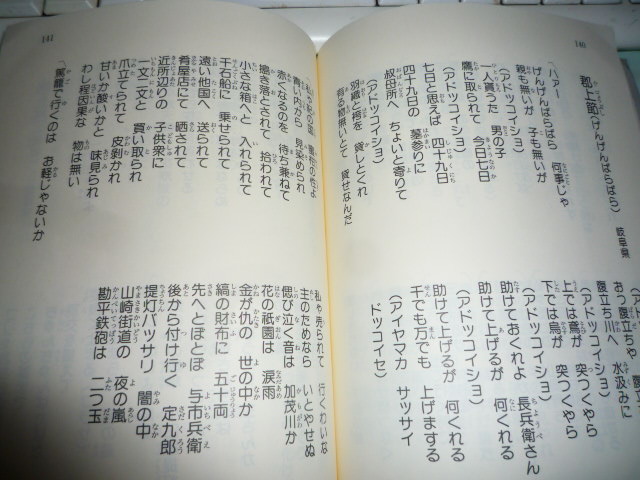 140
郡上節(げんげんばらばら) 岐阜県
「ハァー
げんげんばらばら 何事じゃ
親も無いが 子も無いが
(アドッコイショ)
一人貰うた 男の子
鷹に取られて 今日七日
(アドッコイショ)
七日と思えば 四十九日
四十九日の 墓参りに
叔母所へ ちょいと寄りて
羽織と袴を 貸しとくれ
有る物無いとて 貸せなんだ
おっ腹立ちゃ 腹立
腹立ち川へ 水汲みに
(アドッコイショ)
上では鳶が 突つくやら
下では烏が 突つくやら
(アドッコイショ)
助けておくれよ 長兵衛さん
助けて上げるが 何くれる
(アドッコイショ)
助けて上げるが 何くれる
千でも万でも 上げまする
(アイヤマカ サッサイ
ドッコイセ)
141
「私しゃ紀の国 蜜柑の性よ
青い内から 見染められ
赤くなるのを 待ち兼ねて
掻き落とされて 拾われて
小さな箱へと 入れられて
千石船に 乗せられて
遠い他国へ 送られて
肴屋店にて 晒されて
近所辺りの 子供衆に
一文二文と 買い取られ
爪立てられて 皮剥かれ
甘いか酸いかと 味見られ
わし程因果な 物は無い
「駕籠で行くのは お軽じゃないか
私ゃ売られて 行くわいな
主のためなら いとやせぬ
偲び泣く音は 加茂川か
花の祇園は 涙雨
金が仇の 世の中か
縞の財布に 五十両
先へとぼとぼ 与市兵衛
後から付け行く 定九郎
提灯バッサリ 闇の中
山崎街道の 夜の嵐
勘平鉄砲は 二つ玉